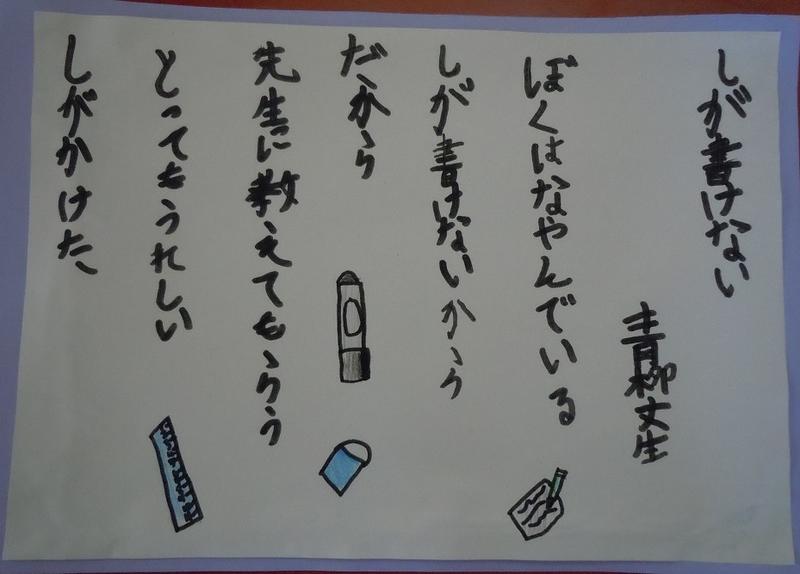 しが書けない
青柳丈生
ぼくはなやんでいる
しが書けないから
だから
先生に教えてもらう
とってもうれしい
しがかけた